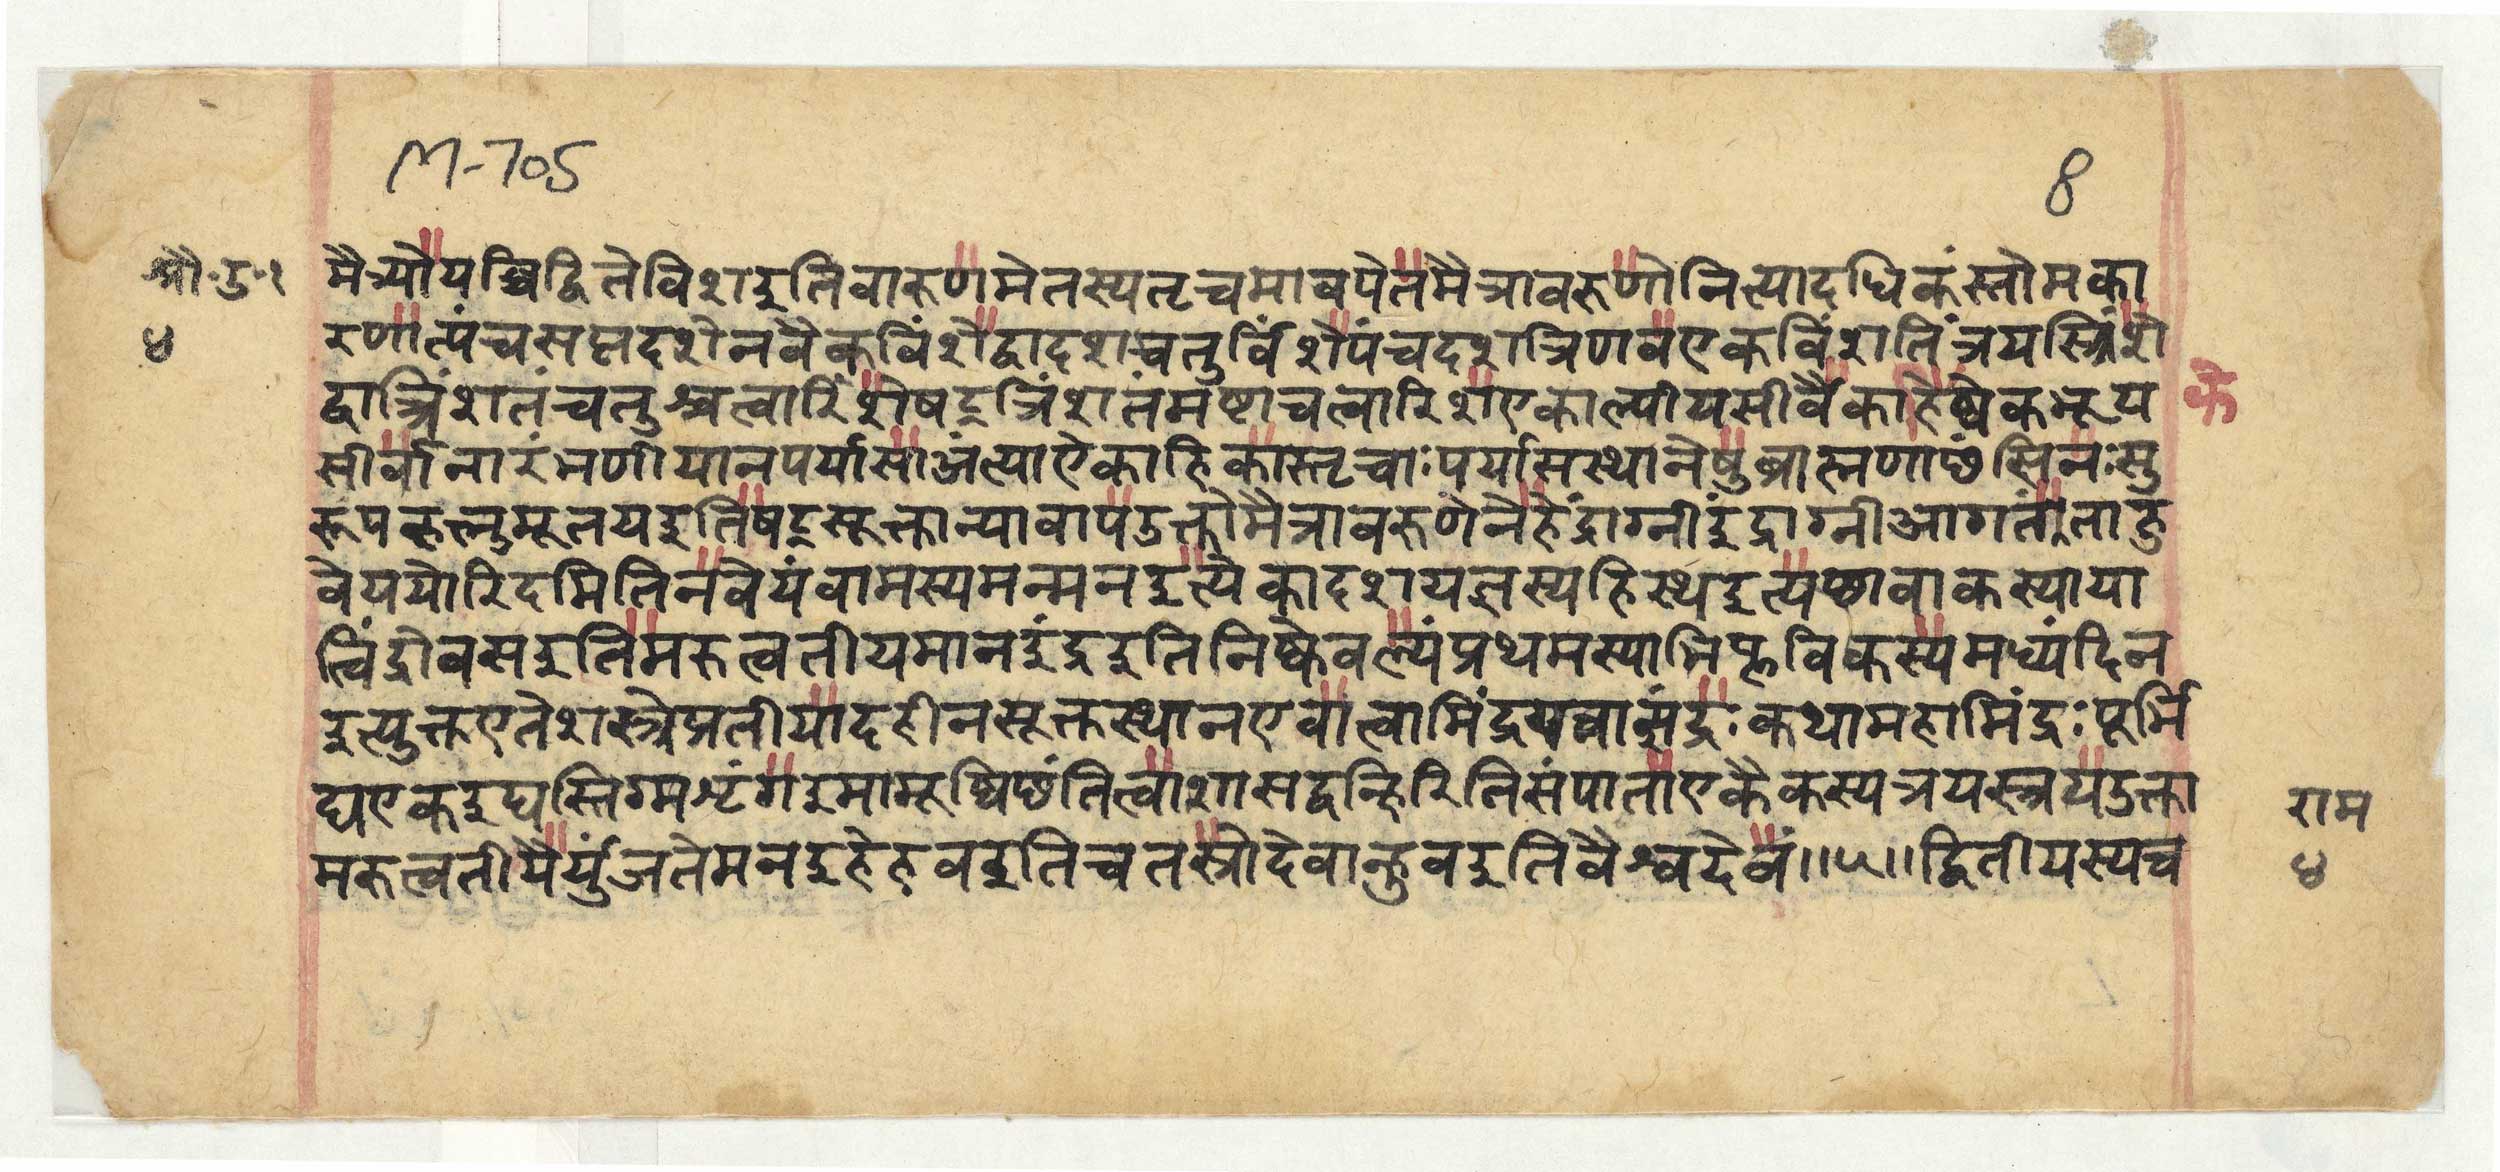 M-705
8
श्रौ॰उ॰१
४
मैत्र्यौयच्चिद्धितेविशइतिवारुणमेतस्यतृचमावपेतमैत्रावरुणोनित्यादधिकंस्तोमका
रणात्पंचसप्तदशेनवैकविंशेद्वादशचतुर्विंशेपंचदशत्रिणवएकविंशतिंत्रयस्त्रिंशे
द्वात्रिंशतंचतुश्चत्वारिंशेषट्त्रिंशतंमष्टाचत्वारिंशएकाल्पीयसीर्वैकाहेष्वेकभूय
कै
सीर्वानारंभणीयानपर्यासाअंत्याऐकाहिकास्तृचाःपर्यासस्थानेषुब्राह्मणाछंसिनःसु
रूपकृत्नुमूतयइतिषट्सूक्तान्यावापउक्तोमैत्रावरुणेनेहेंद्राग्नीइंद्राग्नीआगतंताहु
वेययोरिदमितिनवेयंवामस्यमन्मनइत्येकादशयज्ञस्यहिस्थइत्यछावाकस्याया
त्विंद्रोवसइतिमरुत्वतीयमानइंद्रइतिनिष्केवल्यंप्रथमस्याभिप्लविकस्यमध्यंदिन
इत्युक्तएतेशस्त्रेप्रतीयादहीनसूक्तस्थानएवात्वामिंद्रयन्नइंद्रःकथामहामिंद्रःपूर्भि
द्यएकइद्यस्तिग्मशृंगइमामूष्विछंतित्वाशासद्वन्हिरितिसंपाताएकैकस्यत्रयस्त्रयउक्ता
मरुत्वतीयैर्युंजतेमनइहेहवइतिचतस्रोदेवान्हुवइतिवैश्वदेवं॥५॥द्वितीयस्यच
राम
४